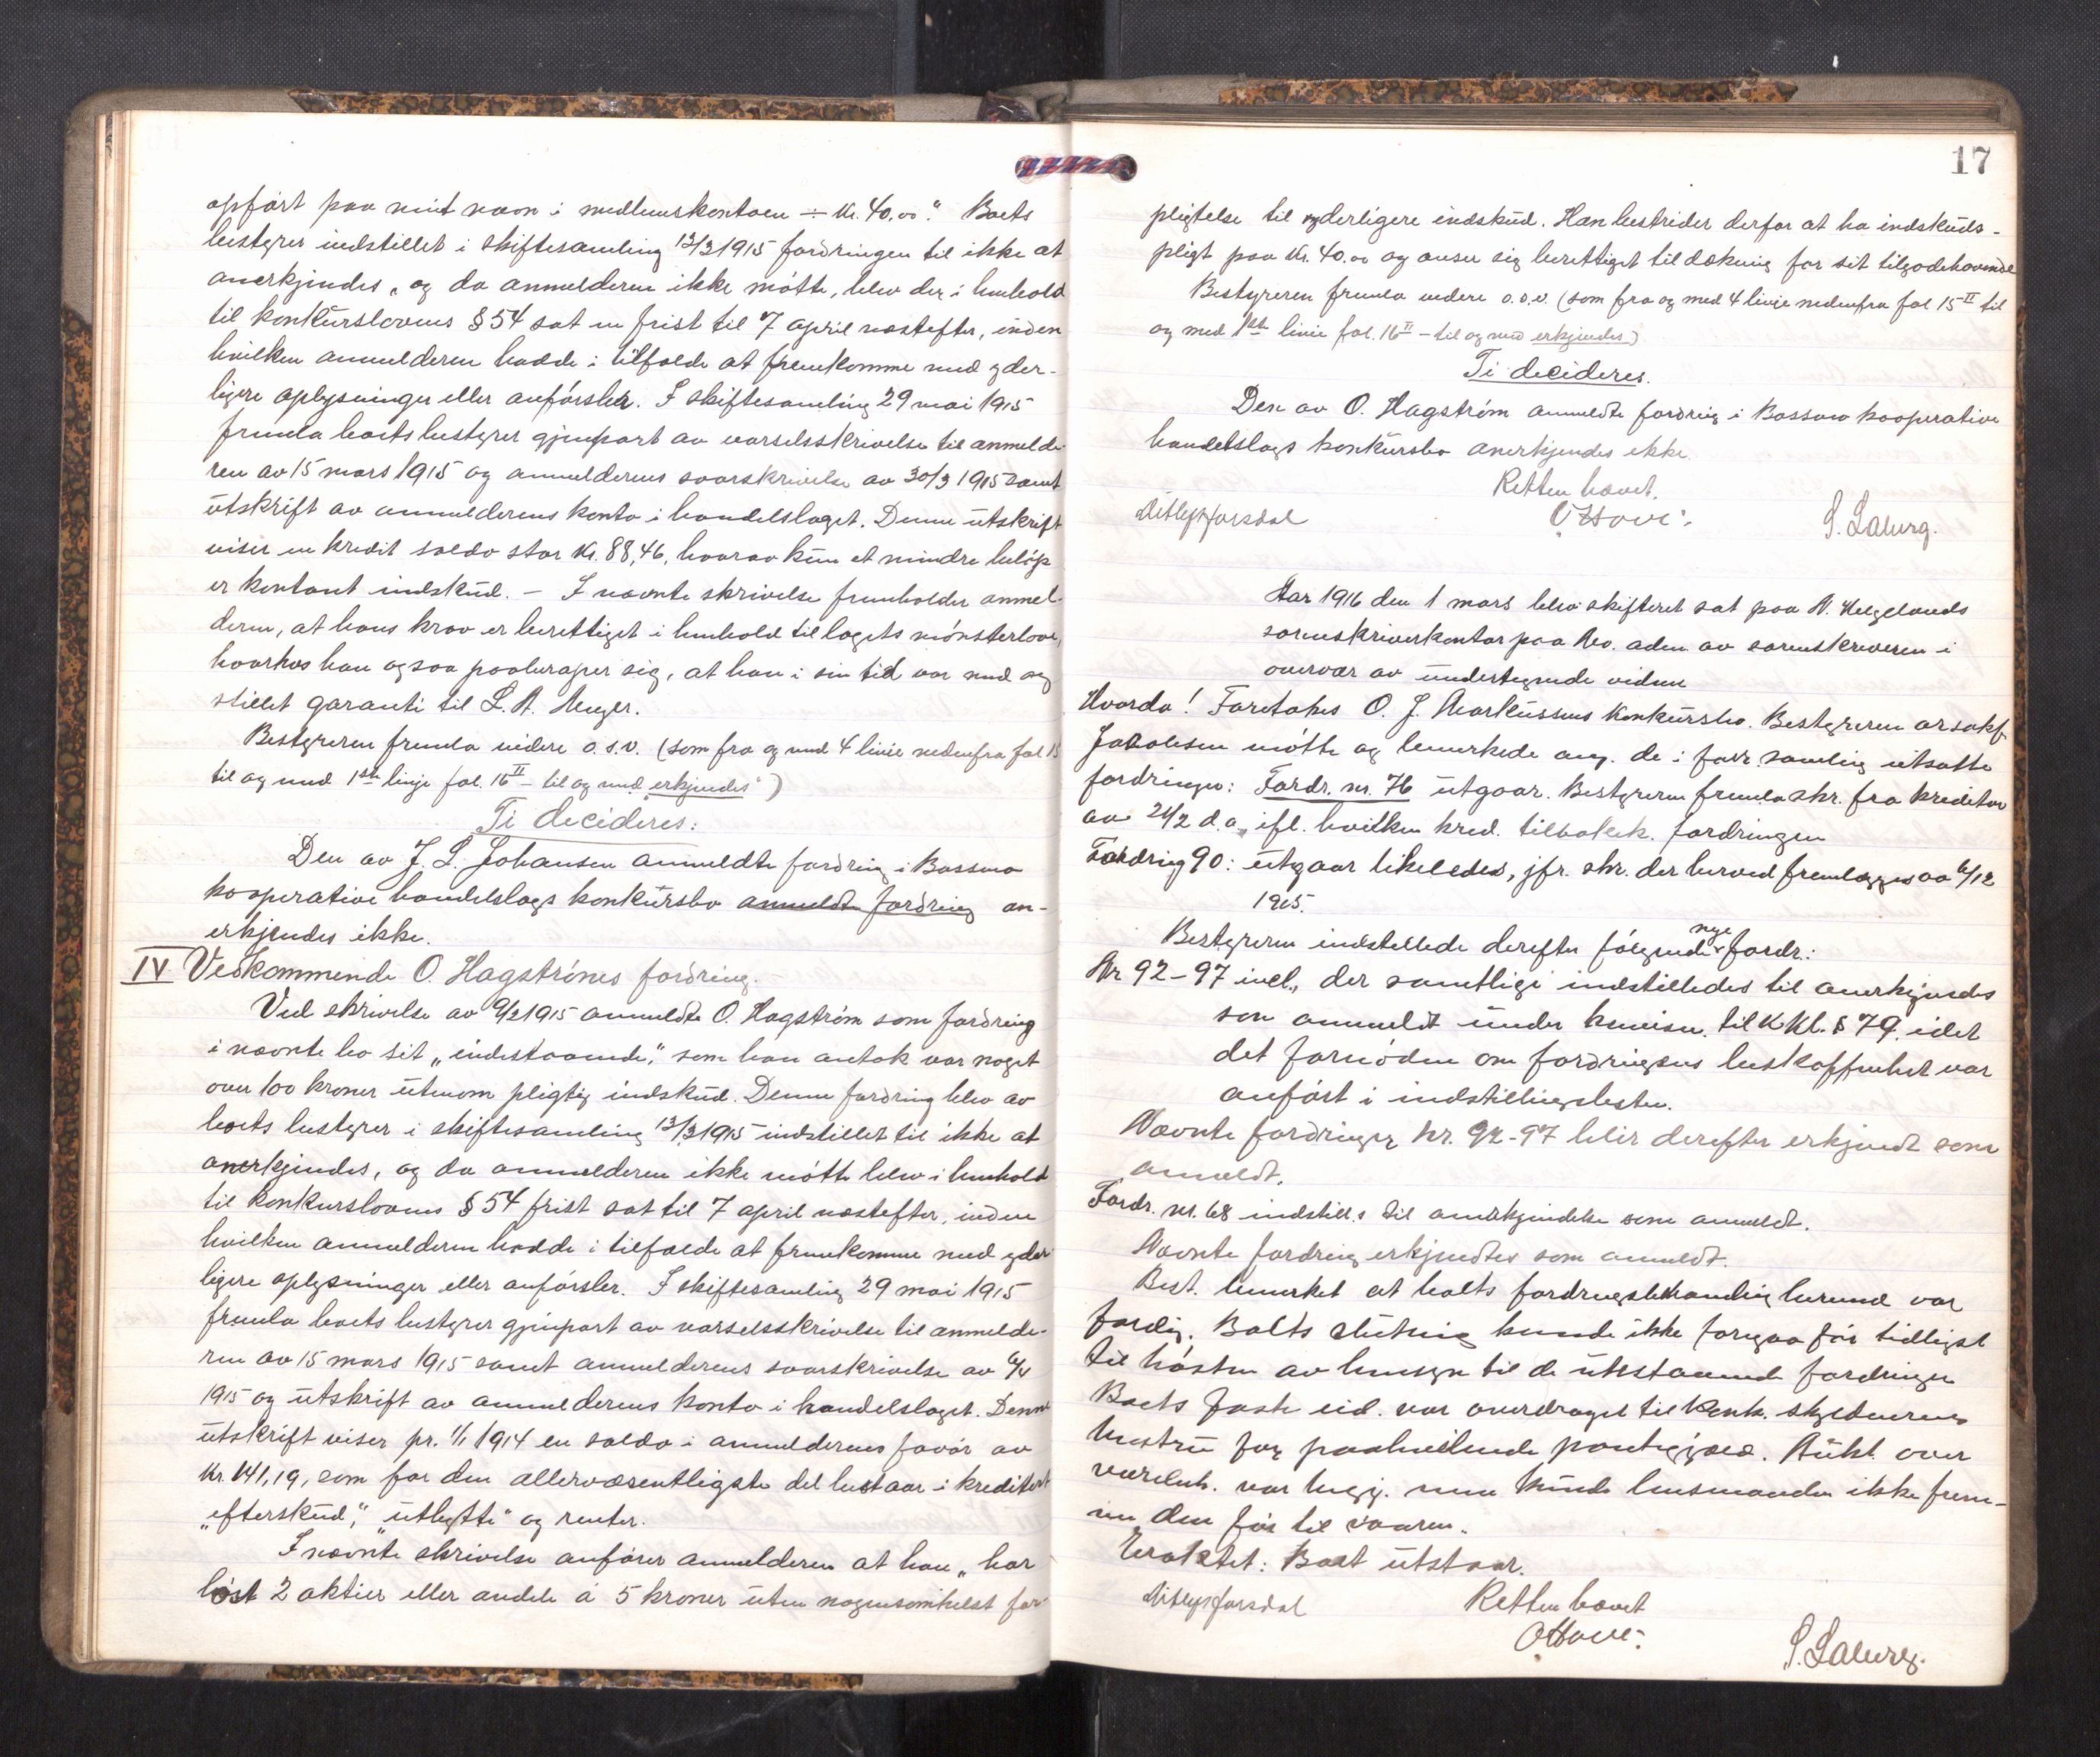 opført paa mit navn i medlemskontoen ÷ kr. 40.00." Boets
bestyrer indstillet i skiftesamling 12/3 1915 fordringen til ikke at
anerkjendes, og da anmelderen ikke møtte, blev der i henhold
til konkurslovens § 54 sat en frist til 7 april næstefter, inden
hvilken anmelderen hadde i tilfælde at fremkomme med yder-
ligere oplysninger eller anførsler. I skiftesamling 29 mai 1915
fremla boets bestyrer gjenpart av varselsskrivelse til anmelde-
ren av 15 mars 1915 og anmelderens svarskrivelse av 30/3 1915 samt
utskrift av anmelderens konto i handelslaget. Denne utskrift
viser en kredit saldo stor kr. 88,46, hvorav kun et mindre beløp
er kontant indskud. – I nævnte skrivelse fremholder anmel-
deren, at hans krav er berettiget i henhold til lagets mønsterlove,
hvorhos han ogsaa paaberaaper sig, at han i sin tid var med og
stillet garanti til L. A. Meyer.
Bestyreren fremla videre o.s.v. (som fra og med 4 linie nedenfra fol 15
til og med 1ste linje fol. 16 II – til og med "erkjendes")
Ti decideres:
Den av J. L. Johansen anmeldte fordring i Bassmo
kooperative handelslags konkursbo anmeldte fordring an-
erkjendes ikke.
IV Vedkommende O. Hagstrøms fordring.
Ved skrivelse av 9/2 1915 anmeldte O. Hagström som fordring
i nævnte bo sit „indestaaende", som han antok var noget
over 100 kroner utenom pligtig indskud. Denne fordring blev av
boets bestyrer i skiftesamling 12/3 1915 indstillet til ikke at
anerkjendes, og da anmelderen ikke møtte blev i henhold
til konkurslovens § 54 frist sat til 7 april næstefter, inden
hvilken anmelderen hadde i tilfælde at fremkomme med yder-
ligere oplysninger eller anførsler. I skiftesamling 29 mai 1915
fremla boets bestyrer gjenpart av varselsskrivelse til anmelde-
ren av 15 mars 1915 samt anmelderens svarskrivelse av 6/4
1915 og utskrift av anmelderens konto i handelslaget. Denne
utskrift viser pr. 1/1 1914 en saldo i anmelderens favør av
kr. 141,19, som for den allervæsentligste del bestaar i kreditert
„efterskud", „utbytte" og renter.
I nævnte skrivelse anfører anmelderen at han „har
løst 2 aktier eller andele á 5 kroner uten nogensomhelst for-
17
pligtelse til yderligere indskud. Han bestrider derfor at ha indskuds-
pligt paa kr. 40.00 og anser sig berettiget til dækning for sit tilgodehavende
Bestyreren fremla videre o.s.v. (som fra og med 4 linje nedenfra fol 15 II til
og med 1ste linie fol. 16 II – til og med erkjendes)
Ti decideres.
Den av O. Hagström anmeldte fordring i Bassmo kooperative
handelslags konkursbo anerkjendes ikke.
Retten hævet.
Ditlefs Jarsdal
S. Laberg.
Aar 1916 den 1 mars blev skifteret sat paa N. Helgelands
sorenskriverkontor paa av sorenskriveren i
overvær av undertegnede vidner
Hvorda! Foretokes O. J. Markussens konkursbo. Bestyreren orsakf.
Jakobsen møtte og bemerkede ang. de i forr. samling utsatte
fordringer: Fordr. nr. 76 utgaar. Bestyreren fremla skr. fra kreditor
av 24/2 d.a., ifl. hvilken kred. tilbakek. fordringen
Fordring 90: utgaar likeledes, jfr. skr. der herved fremlægges av 6/12
1915.
Bestyreren indstillede derefter følgende nye fordr.:
Nr 92–97 incl., der samtlige indstilledes til anerkjendes
som anmeldt under henvisn. til K Kl. § 79. idet
det fornødne om fordringens beskaffenhet var
anført i indstillingslisten.
Nævnte fordringer Nr. 92–97 blir derefter erkjendt som
anmeldt.
Fordr. nr. 68 indstill.s til anerkjendelse som anmeldt.
Nævnte fordring erkjendtes som anmeldt.
Best. bemerket at boets fordringsbehandling herved var
færdig. Boets slutning kunde ikke foregaa før tidligst
til høsten av hensyn til de utestaaende fordringer
Boets faste eid. var overdraget til konk. skyldnerens
hustru for paahvilende pantegjæld. Aukt. over
varebeh. var beg. men kunde lensmanden ikke frem-
me den før til vaaren.
Eraktet: Boet utstaar.
Ditlefs Jarsdal
Retten hævet
S. Laberg.